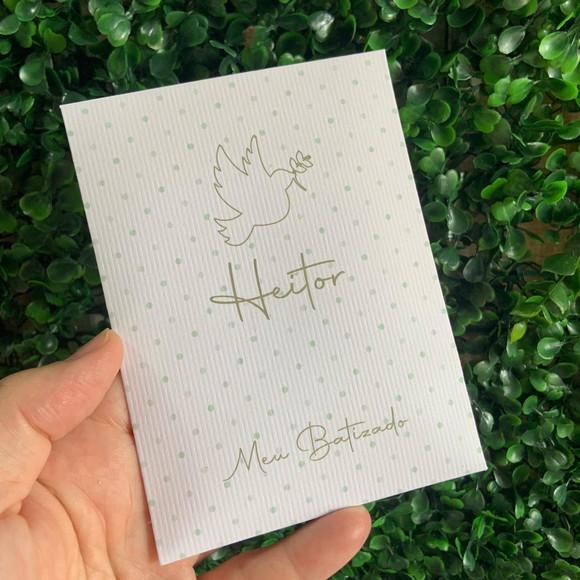 Heitor
Meu Batizado